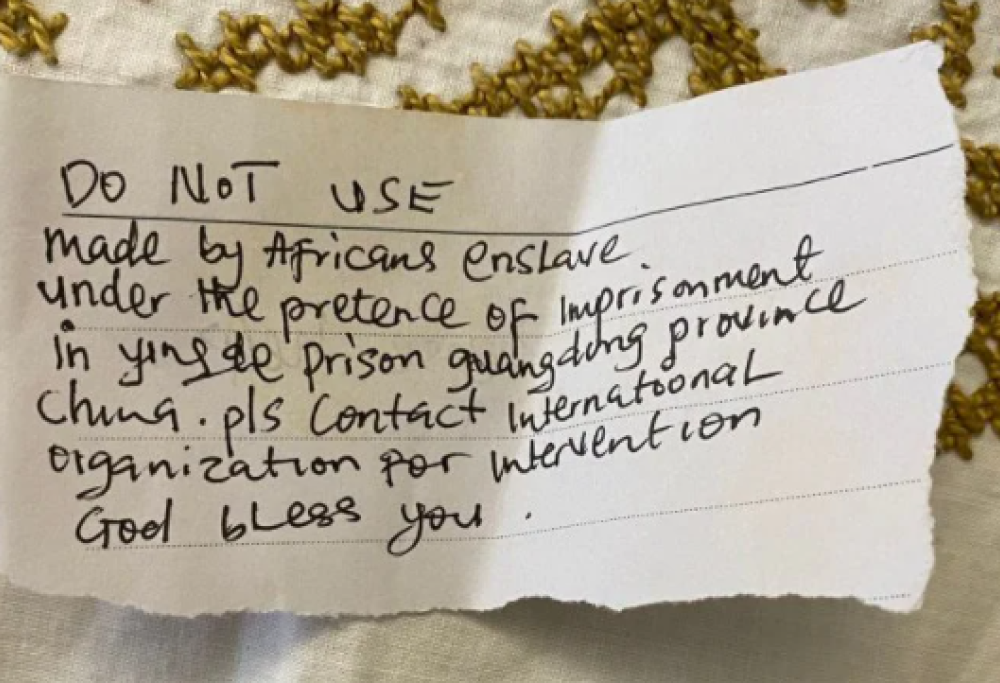 DO NOT USE
made by Africans enslave
under the pretence of Imprisonment
in yingde prison guangdong province
China. pls contact International
organization for intervention
God bless you.